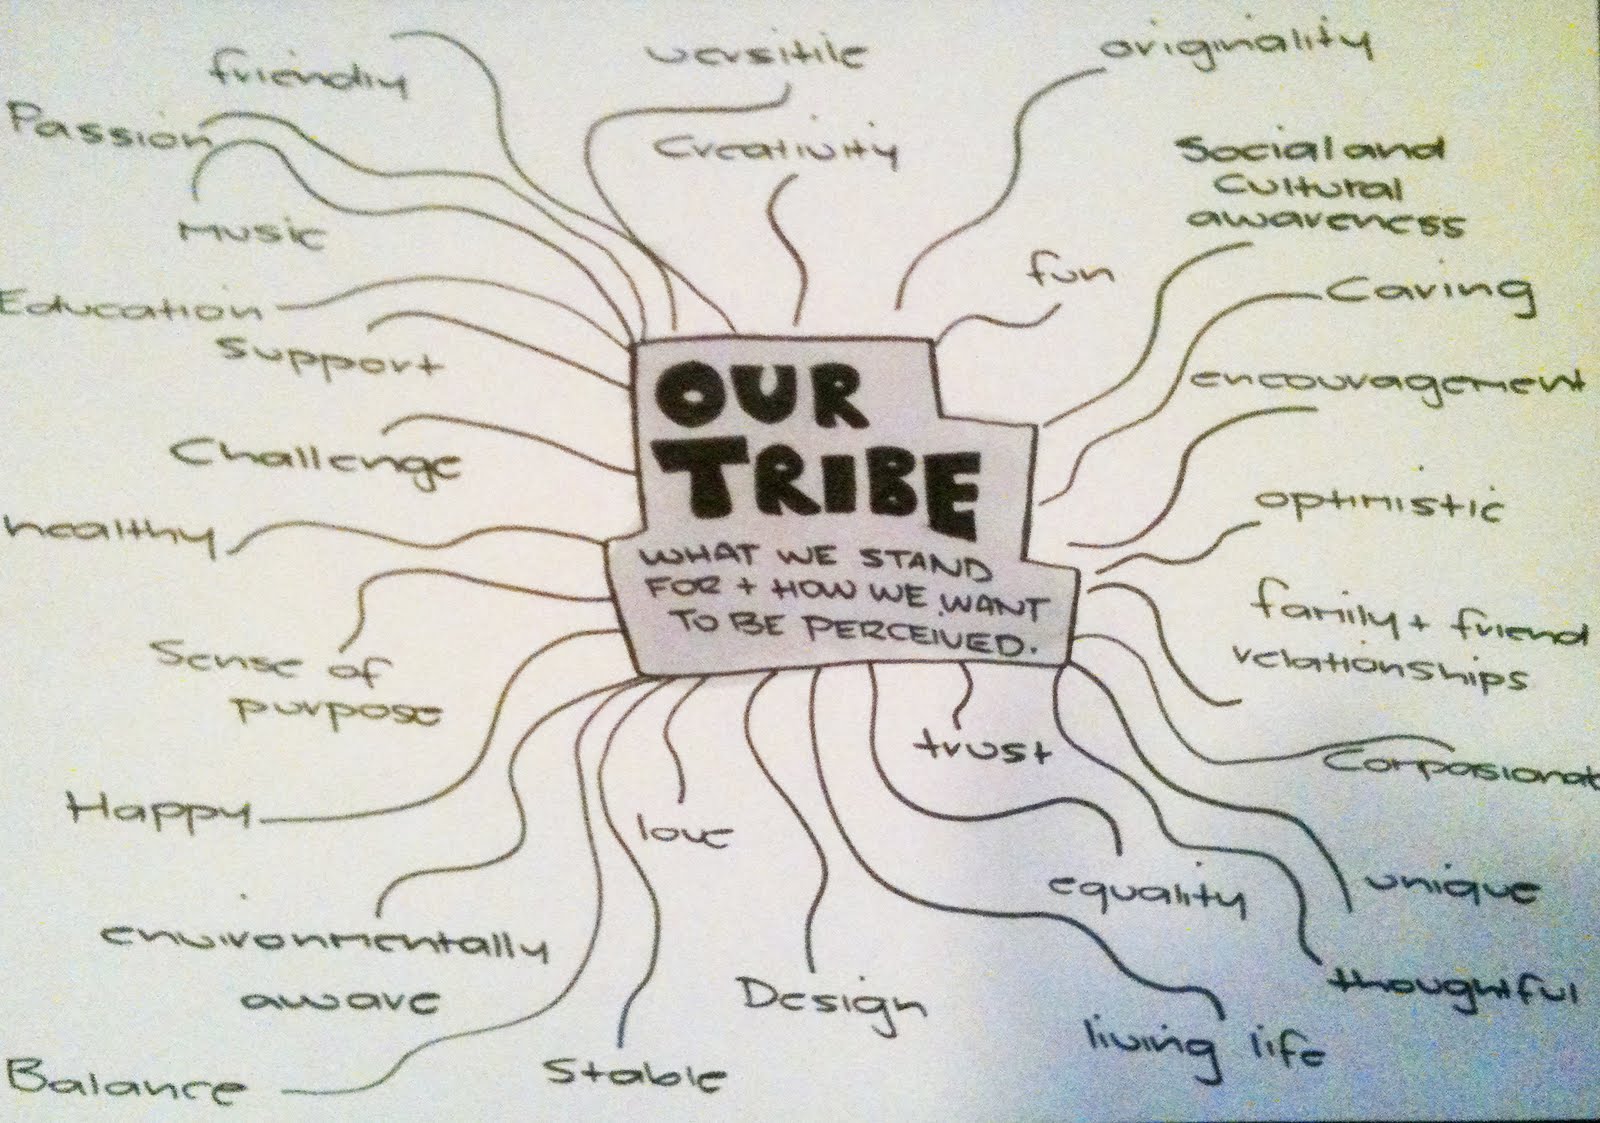 friendly
versitile
originality
Passion
Creativity
Social and
cultural
awareness
Music
fun
Caring
Education
Support
encouragement
OUR
TRIBE
WHAT WE STAND
FOR + HOW WE WANT
TO BE PERCEIVED.
Challenge
optimistic
healthy
family + friend
relationships
Sense of
purpose
trust
Compasionat
Happy
love
equality
unique
environmentally
aware
Design
thoughtful
living life
Balance
Stable